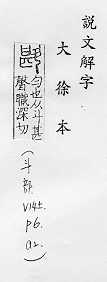 説文解字
大徐本
勺也从斗甚
聲職深切
(斗部
V14上.
p6.
a2.)